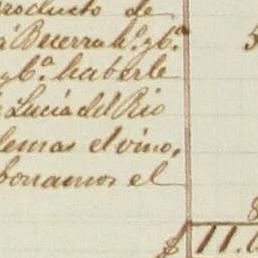 producto de
Becerra h.º y b.ª 5
y b.ª haberle
Lucia del Rio
demas el vino,
bonamos el
$ 11.0